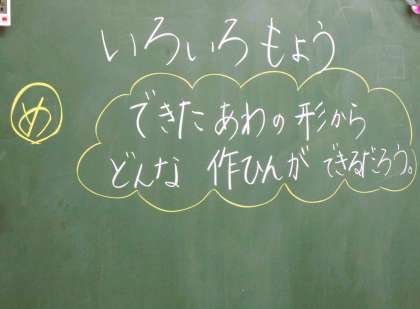 いろいろもよう
め
できたあわの形から
どんな作ひんができるだろう。